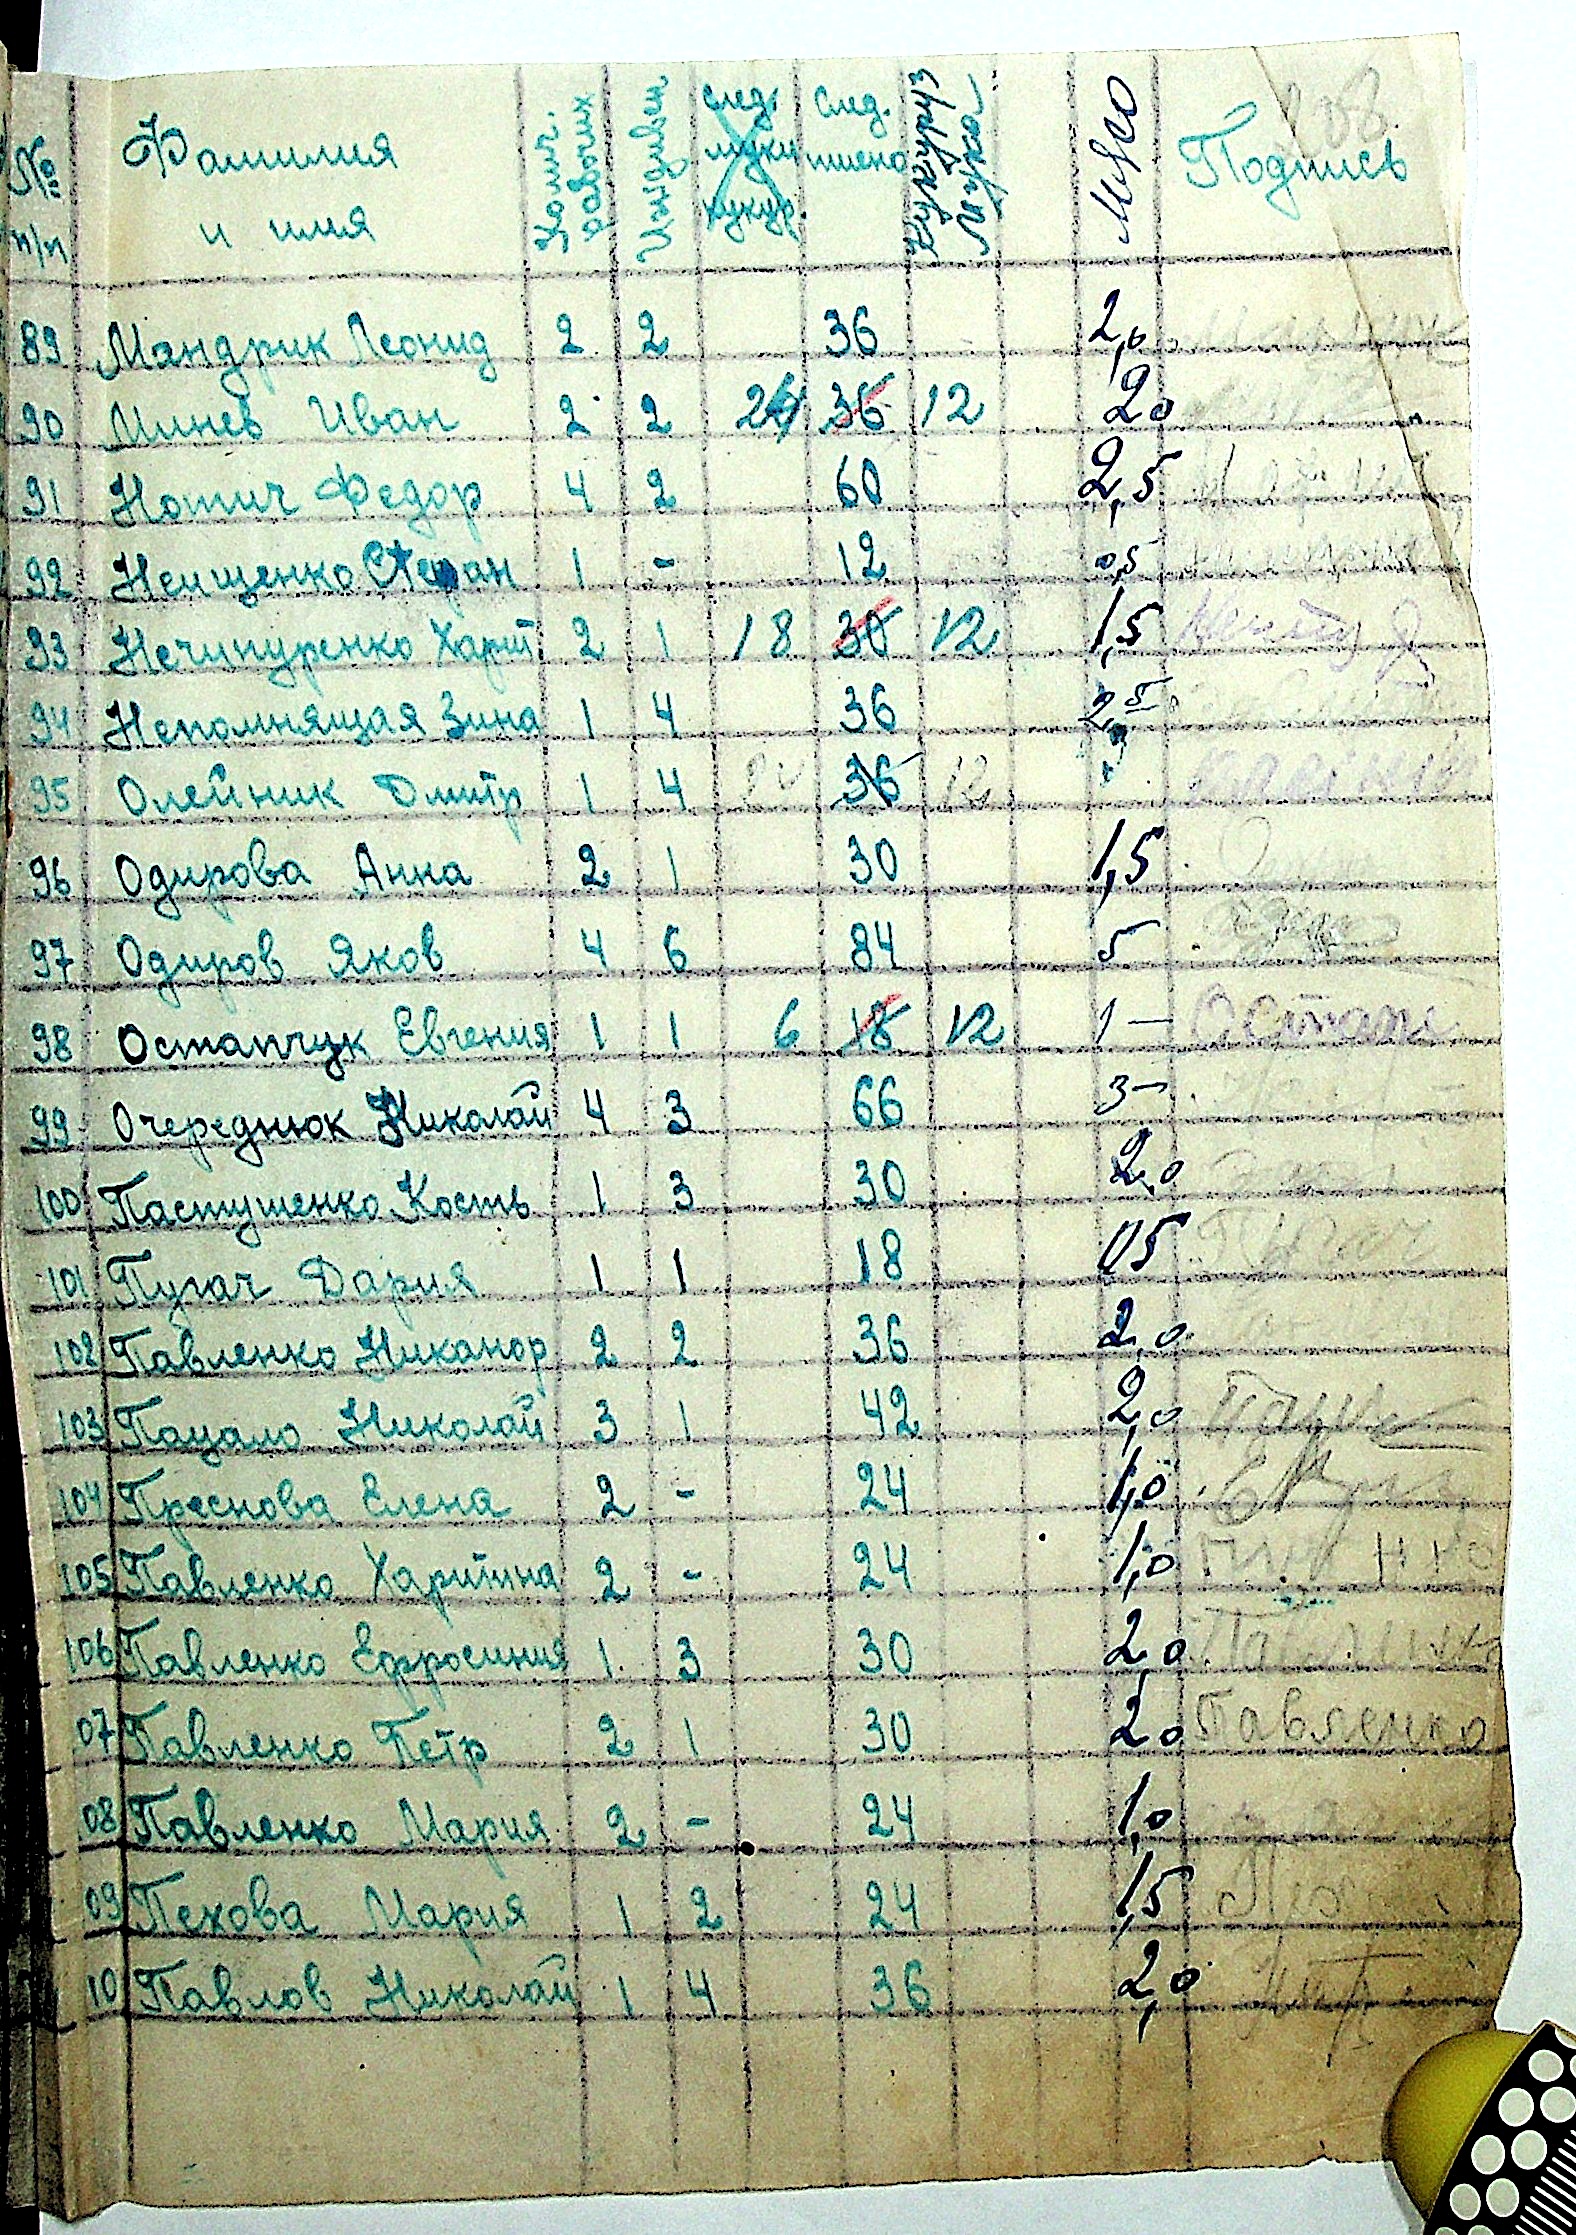 208
№ п/п Фамилия и имя Колич. рабочих Иждивен след. муки кукур. След. пшено Кукурудз Мясо Подпись
89 Мандрик Леонид 2 2 36 2,0
90 Минев Иван 2 2 24 36 12 20
91 Нотич Федор 4 2 60 2,5
92 Неищенко Стефан 1 - 12 0,5
93 Нечипуренко Харит 2 1 18 30 12 1,5
94 Непомнящая Зина 1 4 36 2,5
95 Олейник Дмитр 1 4 24 36 12
96 Одирова Анна 2 1 30 1,5
97 Одиров Яков 4 6 84 5
98 Остапчук Евгения 1 1 6 18 12 1 — Остапч
99 Очереднюк Николай 4 3 66 3 —
100 Пастушенко Кость 1 3 30 2,0
101 Пугач Дария 1 1 18 05 Пугач
102 Павленко Никанор 2 2 36 2,0
103 Пацало Николай 3 1 42 2,0
104 Преснова Елена 2 - 24 1,0
105 Павленко Харитина 2 - 24 1,0
106 Павленко Ефросиния 1 3 30 2,0
07 Павленко Петр 2 1 30 2,0 Павленко
08 Павленко Мария 2 - 24 1,0
09 Пехова Мария 1 2 24 1,5
10 Павлов Николай 1 4 36 2,0